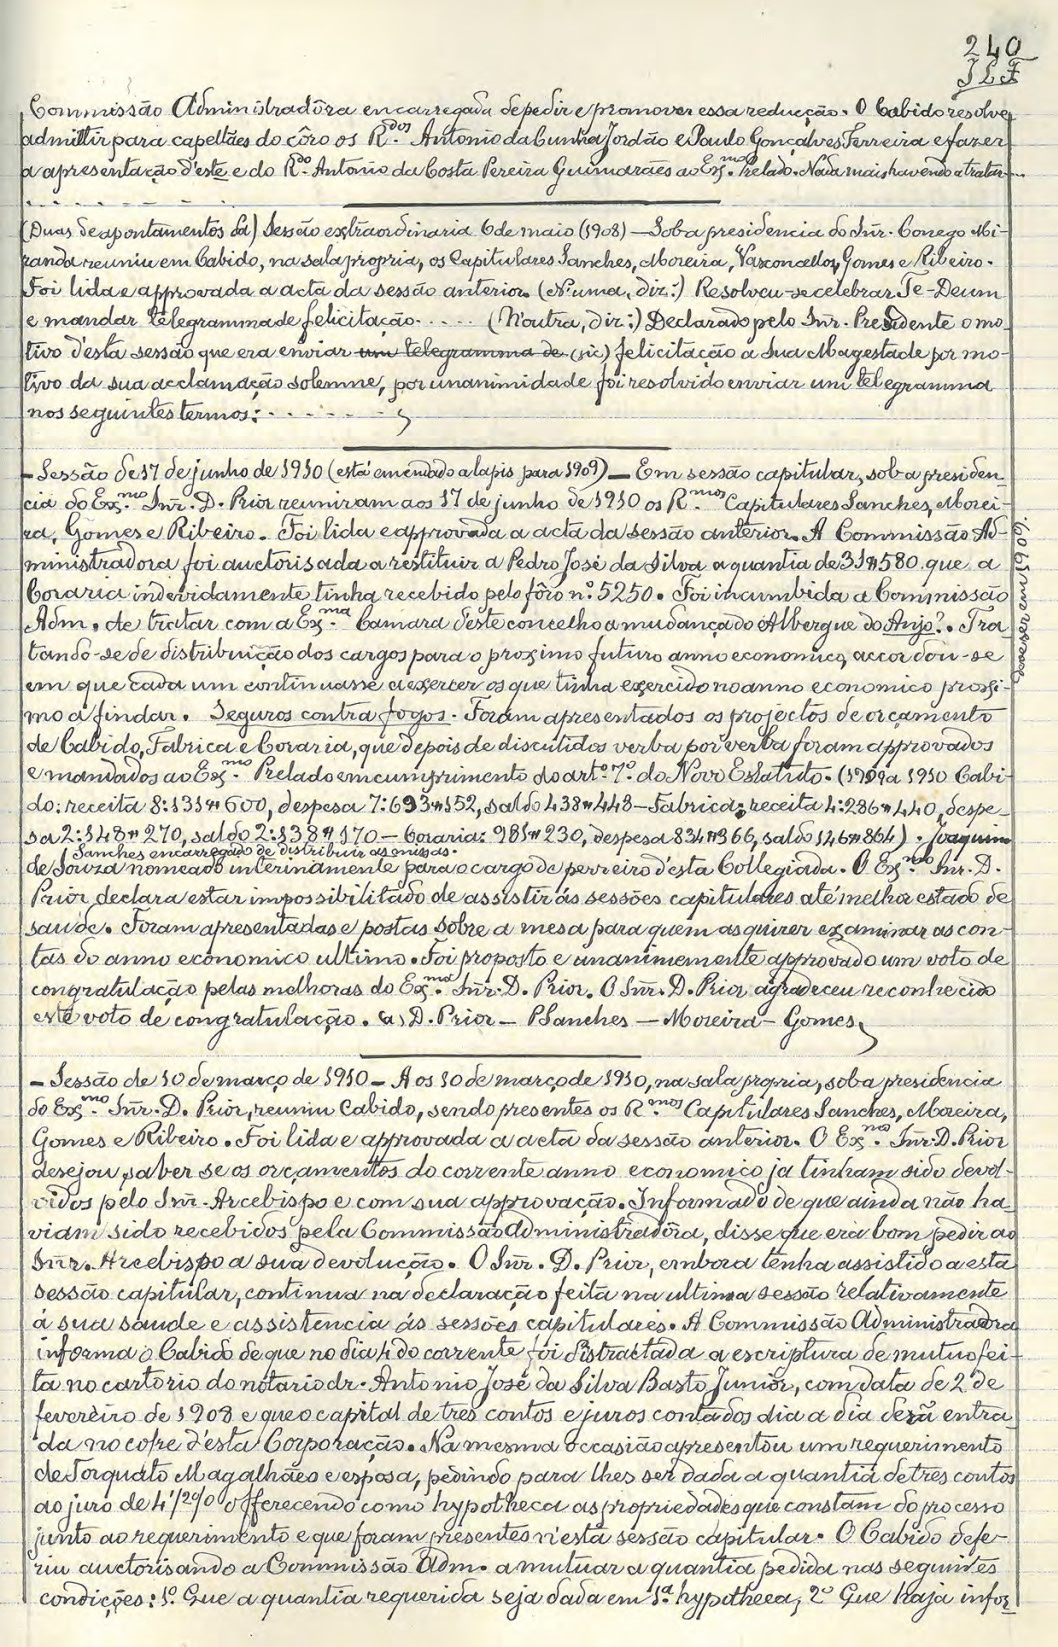 240
JLF
Commissão Administradôra encarregada de pedir e promover essa reducção. O Cabido resolve
admittir para capellães do côro os R.dos Antonio da Cunha Jordão e Paulo Gonçalves Ferreira e fazer
a apresentação d'este e do R.do Antonio da Costa Pereira Guimarães ao Ex.mo Prelado. Nada mais havendo a tratar....
. . . . . . . . . .
(Duas de apontamentos da) Sessão extraordinaria 6 de maio (1908) — Sob a presidencia do Snr. Conego Mi-
randa reuniu em Cabido, na sala propria, os Capitulares Sanches, Moreira, Vasconcellos, Gomes e Ribeiro.
Foi lida e approvada a acta da sessão anterior. (N'uma, diz:) Resolveu-se celebrar Te-Deum
e mandar telegramma de felicitação..... (N'outra, diz:) Declarado pelo Snr. Presidente o mo-
tivo d'esta sessão que era enviar um telegramma de (sic) felicitação a Sua Magestade por mo-
tivo da sua acclamação solemne, por unanimidade foi resolvido enviar um telegramma
nos seguintes termos: . . . . . . .
— Sessão de 17 de junho de 1910 (está emendado a lapis para 1909) — Em sessão capitular, sob a presiden-
cia do Ex.mo Snr. D. Prior reuniram aos 17 de junho de 1910 os R.mos Capitulares Sanches, Morei-
ra, Gomes e Ribeiro. Foi lida e approvada a acta da sessão anterior. A Commissão Ad-
ministradora foi auctorisada a restituir a Pedro José da Silva a quantia de 31$580 que a
Coraria indevidamente tinha recebido pelo fôro n.º 5250. Foi incumbida a Commissão
Adm. de tratar com a Ex.ma Camara d'este concelho a mudança do Albergue do Anjo?. Tra-
tando-se de distribuição dos cargos para o proximo futuro anno economico, accordou-se
em que cada um continuasse a exercer os que tinha exercido no anno economico proxi-
mo a findar. Seguros contra fogos. Foram apresentados os projectos de orçamento
de Cabido, Fabrica e Coraria, que depois de discutidos verba por verba foram approvados
e mandados ao Ex.mo Prelado em cumprimento do art.º 7.º do Novo Estatuto. (1909 a 1910 Cabi-
do: receita 8:131$600, despesa 7:693$152, saldo 438$448 — Fabrica: receita 4:286$440, despe-
sa 2:148$270, saldo 2:138$170 — Coraria: 981$230, despesa 834$366, saldo 146$864). Joaquim
Sanches encarregado de distribuir as missas.
de Souza nomeado interinamente para o cargo de perreiro d'esta Collegiada. O Ex.mo Snr. D.
Prior declara estar impossibilitado de assistir ás sessões capitulares até melhor estado de
saude. Foram apresentadas e postas sobre a mesa para quem as quizer examinar as con-
tas do anno economico ultimo. Foi proposto e unanimemente approvado um voto de
congratulação pelas melhoras do Ex.mo Snr. D. Prior. O Snr. D. Prior agradeceu reconhecido
este voto de congratulação. (a) D. Prior — P. Sanches — Moreira — Gomes
— Sessão de 10 de março de 1910 — Aos 10 de março de 1910, na sala propria, sob a presidencia
do Ex.mo Snr. D. Prior, reuniu Cabido, sendo presentes os R.mos Capitulares Sanches, Moreira,
Gomes e Ribeiro. Foi lida e approvada a acta da sessão anterior. O Ex.mo Snr. D. Prior
desejou saber se os orçamentos do corrente anno economico já tinham sido devol-
vidos pelo Snr. Arcebispo e com sua approvação. Informado de que ainda não ha-
viam sido recebidos pela Commissão Administradôra, disse que era bom pedir ao
Snr. Arcebispo a sua devolução. O Snr. D. Prior, embora tenha assistido a esta
sessão capitular, continua na declaração feita na ultima sessão relativamente
á sua saude e assistencia ás sessões capitulares. A Commissão Administradora
informa o Cabido de que no dia 4 do corrente foi distractada a escriptura de mutuo fei-
ta no cartorio do notario dr. Antonio José da Silva Basto Junior, com data de 2 de
fevereiro de 1908 e que o capital de tres contos e juros contados dia a dia dera entra-
da no cofre d'esta Corporação. Na mesma occasião apresentou um requerimento
de Torquato Magalhães e esposa, pedindo para lhes ser dada a quantia de tres contos
ao juro de 4 1/2 % offerecendo como hypotheca as propriedades que constam do processo
junto ao requerimento e que foram presentes n'esta sessão capitular. O Cabido defe-
riu auctorisando a Commissão Adm. a mutuar a quantia pedida nas seguintes
condições: 1.º Que a quantia requerida seja dada em 1.ª hypotheca; 2.º Que haja infor-